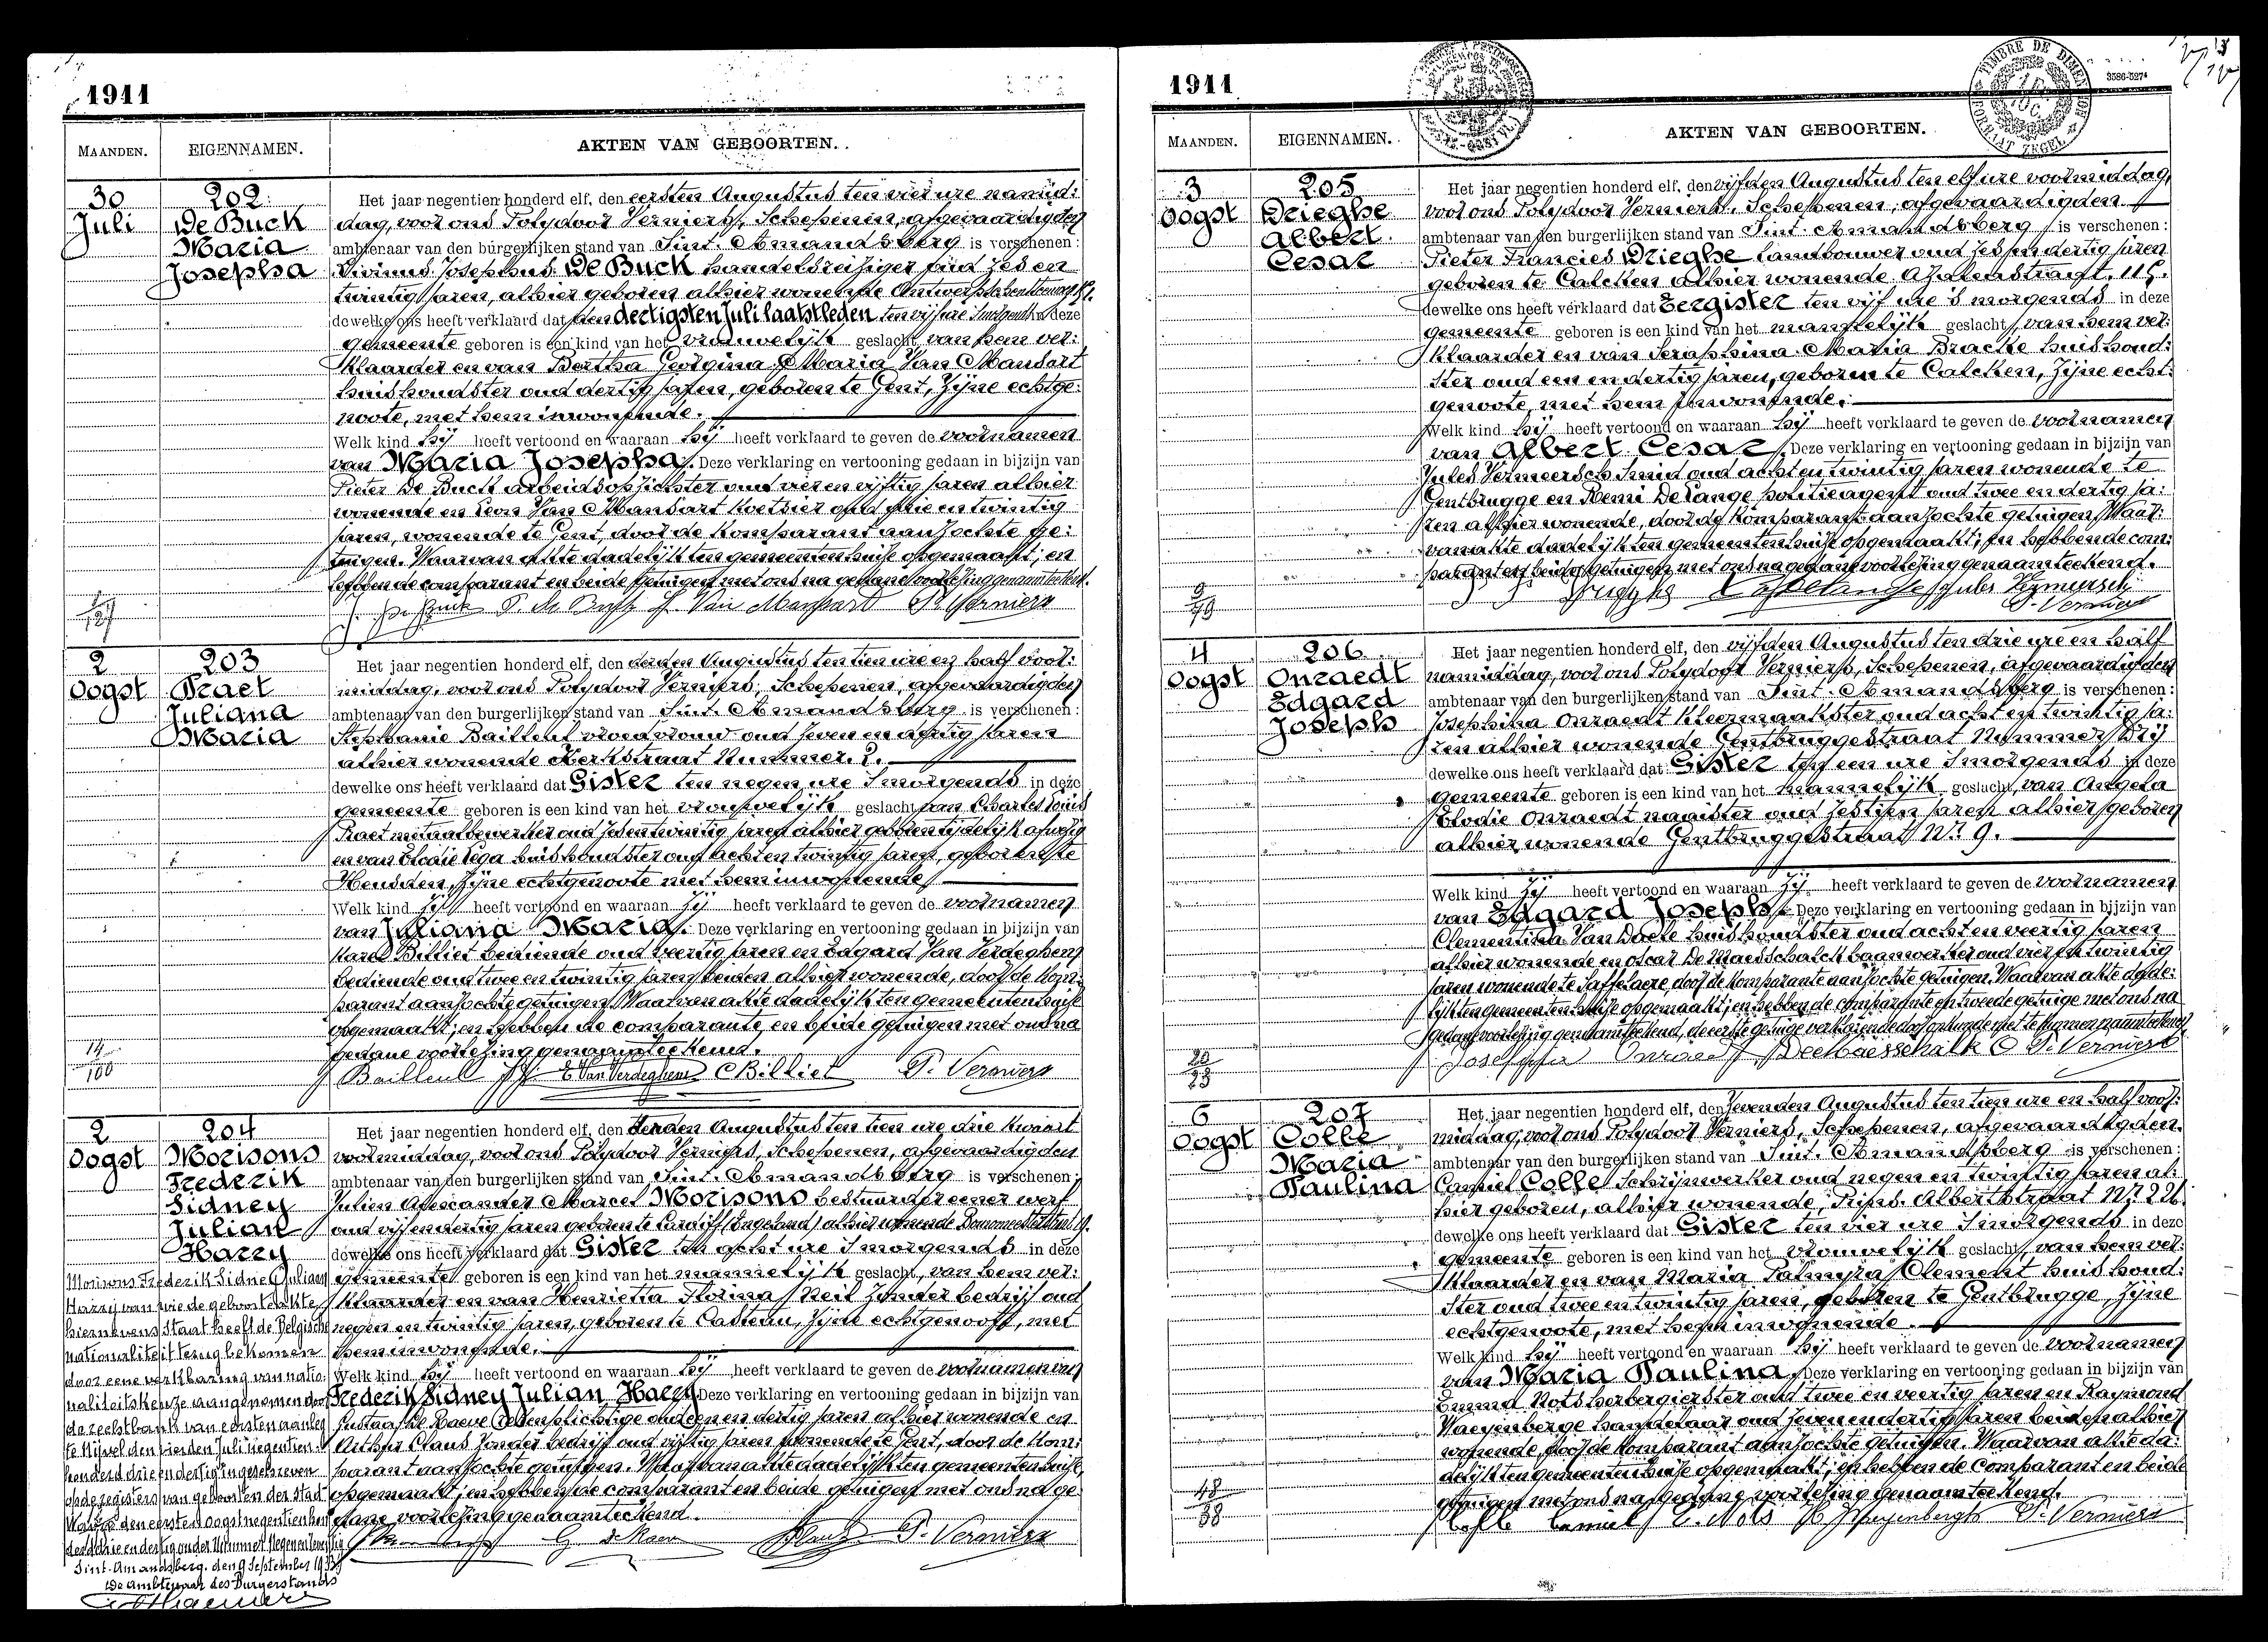 1911
MAANDEN.
EIGENNAMEN.
AKTEN VAN GEBOORTEN.
30
Juli
202.
De Buck
Maria
Josepha
Het jaar negentien honderd elf, den eersten Augustus ten vier ure namid:
dag, voor ons Polydoor Verniers, Schepenen, afgevaardigden
ambtenaar van den burgerlijken stand van Sint. Amandsberg is verschenen:
Livinus Josephus De Buck handelsreiziger oud zes en
twintig jaren, alhier geboren alhier wonende
dewelke ons heeft verklaard dat den dertigsten Juli laatstleden ten vijf ure 's morgends in deze
gemeente geboren is een kind van het vrouwelijk geslacht, van hem ver:
klaarder en van Bertha Georgina Maria Van Mansart
huishoudster oud dertig jaren, geboren te Gent, zijne echtge:
noote, met hem inwonende.
Welk kind hij heeft vertoond en waaraan hij heeft verklaard te geven de voornamen
van Maria Josepha. Deze verklaring en vertooning gedaan in bijzijn van
Pieter De Buck arbeidsopzichter oud vier en vijftig jaren alhier
wonende en Leon Van Mansart koetsier oud drie en twintig
jaren, wonende te Gent, door de komparant aanzochte ge:
tuigen. Waarvan akte dadelijk ten gemeentenhuise opgemaakt; en
hebben de comparant en beide getuigen met ons na gedane voorlezing genaamteekend.
P. De Buck L. Van Mansart P. Verniers
2
Oogst
203
Praet
Juliana
Maria
Het jaar negentien honderd elf, den derden Augustus ten tien ure en half voor:
middag, voor ons Polydoor Verniers, Schepenen, afgevaardigden
ambtenaar van den burgerlijken stand van Sint. Amandsberg is verschenen:
Stephanie Bailleul vroedvrouw oud zeven en dertig jaren
alhier wonende Kerkstraat Nummer.
dewelke ons heeft verklaard dat Gister ten negen ure 's morgends in deze
gemeente geboren is een kind van het vrouwelijk geslacht van Charles Louis
Praet metaalbewerker oud zes en twintig jaren alhier geboren tijdelijk afwezig
en van Elodie Pega huishoudster oud acht en twintig jaren, geboren te
Heusden, zijne echtgenoote met hem inwonende
Welk kind zij heeft vertoond en waaraan zij heeft verklaard te geven de voornamen
van Juliana Maria. Deze verklaring en vertooning gedaan in bijzijn van
Karel Billiet bediende oud veertig jaren en Edgard Van Verdeghem
bediende oud twee en twintig jaren beiden alhier wonende, door de kom:
parant aanzochte getuigen. Waarvan akte dadelijk ten gemeentenhuise
opgemaakt; en hebben de comparante en beide getuigen met ons na
gedane voorlezing genaamteekend.
14
100
Bailleul E. Van Verdeghem C Billiet P. Verniers
2
Oogst
204
Morisons
Frederik
Sidney
Julian
Harry
Het jaar negentien honderd elf, den derden Augustus ten tien ure drie kwaart
voormiddag, voor ons Polydoor Verniers, Schepenen, afgevaardigden
ambtenaar van den burgerlijken stand van Sint. Amandsberg is verschenen:
Julien Alexander Marcel Morisons bestuurder eener werf
oud vijf en dertig jaren geboren te Cardiff (Engeland) alhier wonende
dewelke ons heeft verklaard dat Gister ten acht ure 's morgends in deze
gemeente geboren is een kind van het mannelijk geslacht, van hem ver:
klaarder en van Henrietta Florina Neit zonder bedrijf oud
negen en twintig jaren, geboren te Casteau, zijne echtgenoote, met
hem inwonende.
Welk kind hij heeft vertoond en waaraan hij heeft verklaard te geven de voornamen van
Frederik Sidney Julian Harry Deze verklaring en vertooning gedaan in bijzijn van
Gustaaf De Raeve oud een en dertig jaren alhier wonende en
Arthur Claus zonder bedrijf oud vijftig jaren wonende te Gent, door de kom:
parant aanzochte getuigen. Waarvan akte dadelijk ten gemeentenhuise,
opgemaakt; en hebben de comparant en beide getuigen met ons na ge
dane voorlezing genaamteekend.
P. Verniers
Morisons Frederik Sidney Julian
Harry van wie de geboorteakte
hiernevens staat heeft de Belgische
nationaliteit terug bekomen
door eene verklaring van natio:
naliteitskeuze aangenomen door
de rechtbank van eersten aanleg
te Nijvel den vierden Juli negentien
honderd drie en dertig ingeschreven
op de registers van geboorten der stad
Waver den eersten Oogst negentien hon
derd drie en dertig onder Nummer Negen en
Sint-Amandsberg, den 9 September 1933
De Ambtenaar des Burgerstands
1911
3586-5274
MAANDEN.
EIGENNAMEN.
AKTEN VAN GEBOORTEN.
3
Oogst
205
Drieghe
Albert
Cesar
Het jaar negentien honderd elf, den vijfden Augustus ten elf ure voormiddag,
voor ons Polydoor Verniers, Schepenen, afgevaardigden
ambtenaar van den burgerlijken stand van Sint. Amandsberg is verschenen:
Pieter Francies Drieghe Landbouwer oud zes en dertig jaren
geboren te Calcken alhier wonende Azalenstraat. 115.
dewelke ons heeft verklaard dat Eergister ten vijf ure 's morgends in deze
gemeente geboren is een kind van het mannelijk geslacht, van hem ver:
klaarder en van Seraphina Maria Bracke huishoud:
ster oud een en dertig jaren, geboren te Calcken, zijne echt:
genoote, met hem inwonende.
Welk kind hij heeft vertoond en waaraan hij heeft verklaard te geven de voornamen
van Albert Cesar. Deze verklaring en vertooning gedaan in bijzijn van
Jules Vermeersch Smid oud acht en twintig jaren wonende te
Gentbrugge en Remi De Lange politieagent oud twee en dertig ja:
ren alhier wonende, door de komparant aanzochte getuigen. Waar:
van akte dadelijk ten gemeentenhuise opgemaakt; en hebben de com:
parant en beide getuigen met ons na gedane voorlezing genaamteekend.
Jules Vermeersch
P. Verniers
4
Oogst
206
Onraedt
Edgard
Joseph
Het jaar negentien honderd elf, den vijfden Augustus ten drie ure en half
namiddag, voor ons Polydoor Verniers, Schepenen, afgevaardigden
ambtenaar van den burgerlijken stand van Sint. Amandsberg is verschenen:
Josephina Onraedt Kleermaakster oud acht en twintig ja:
ren alhier wonende Gentbruggestraat Nummer
dewelke ons heeft verklaard dat Gister ten een ure 's morgends in deze
gemeente geboren is een kind van het mannelijk geslacht, van Angela
Elodie Onraedt naaister oud zestien jaren alhier geboren
alhier wonende Gentbruggestraat Nr. 9.
Welk kind zij heeft vertoond en waaraan zij heeft verklaard te geven de voornamen
van Edgard Joseph. Deze verklaring en vertooning gedaan in bijzijn van
Clementina Van Daele huishoudster oud acht en veertig jaren
alhier wonende en Oscar De Maesschalck baanwerker oud vier en twintig
jaren wonende te Saffelaere, door de komparante aanzochte getuigen. Waarvan akte dade:
lijk ten gemeentenhuise opgemaakt; en hebben de comparante en tweede getuige met ons na
gedane voorlezing genaamteekend, de eerste getuige verklarende door onkunde niet te kunnen naamteekenen
23
Josephina Onraedt DeMaesschalk O P. Verniers
6
Oogst
207
Colle
Maria
Paulina
Het jaar negentien honderd elf, den zevenden Augustus ten tien ure en half voor:
middag, voor ons Polydoor Verniers, Schepenen, afgevaardigden.
ambtenaar van den burgerlijken stand van Sint. Amandsberg is verschenen:
Camiel Colle Schrijnwerker oud negen en twintig jaren al:
hier geboren, alhier wonende, Prins. Albertstraat Nr. 226.
dewelke ons heeft verklaard dat Gister ten vier ure 's morgends in deze
gemeente geboren is een kind van het vrouwelijk geslacht, van hem ver:
klaarder en van Maria Palmyra Clement huishoud:
ster oud twee en twintig jaren, geboren te Gentbrugge, zijne
echtgenoote, met hem inwonende.
Welk kind hij heeft vertoond en waaraan hij heeft verklaard te geven de voornamen
van Maria Paulina, Deze verklaring en vertooning gedaan in bijzijn van
Emma Nots herbergierster oud twee en veertig jaren en Raymond
Waeyenberge handelaar oud zeven en dertig jaren beiden alhier
wonende, door de komparant aanzochte getuigen. Waarvan akte da:
delijk ten gemeentenhuise opgemaakt; en hebben de comparant en beide
getuigen met ons na gedane voorlezing genaamteekend.
48
38
Colle Camiel E. Nots P. Verniers